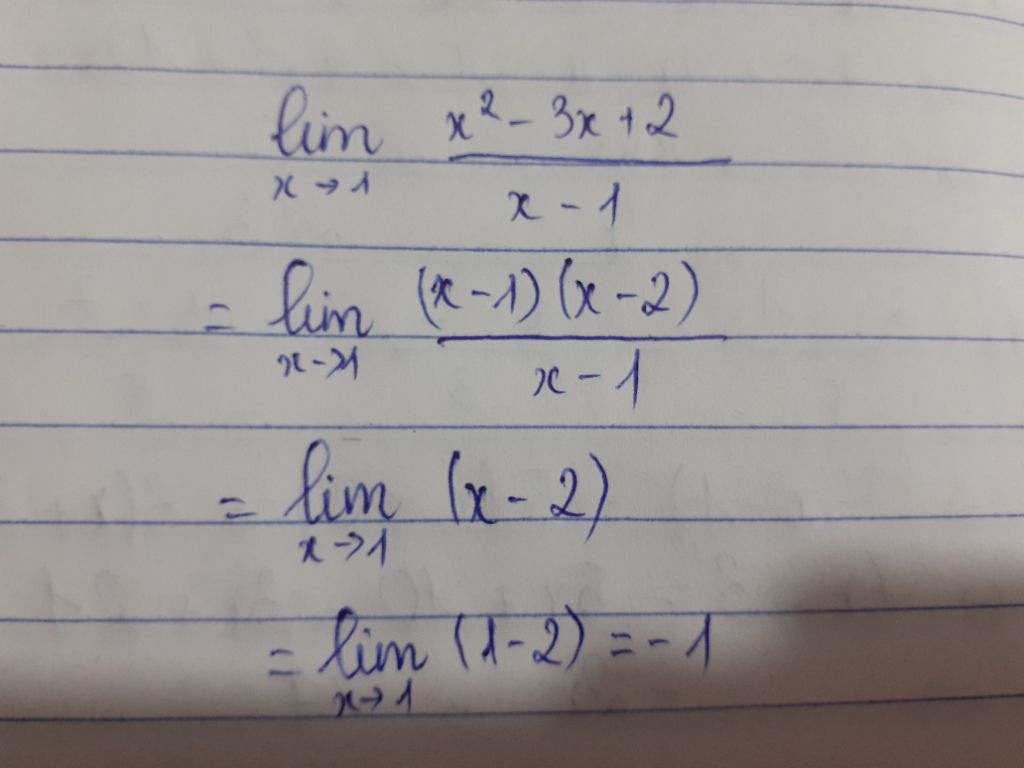 lim x→1 (x² - 3x + 2) / (x - 1)
= lim x→1 (x - 1)(x - 2) / (x - 1)
= lim x→1 (x - 2)
= lim x→1 (1 - 2) = -1